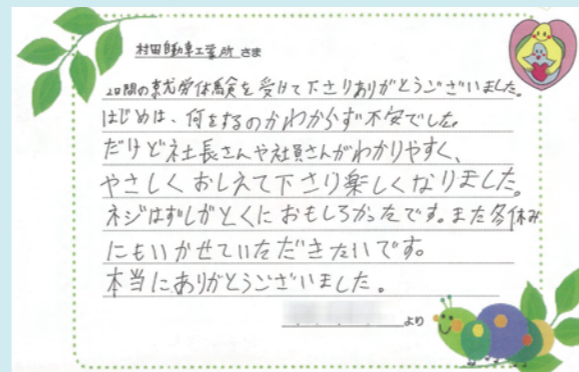 村田自動車工業所 さま
2日間の就労体験を受けて下さりありがとうございました。
はじめは、何をするのかわからず不安でした。
だけど社長さんや社員さんがわかりやすく、
やさしくおしえて下さり楽しくなりました。
ネジはずしがとくにおもしろかったです。また冬休み
にもいかせていただきたいです。
本当にありがとうございました。
より